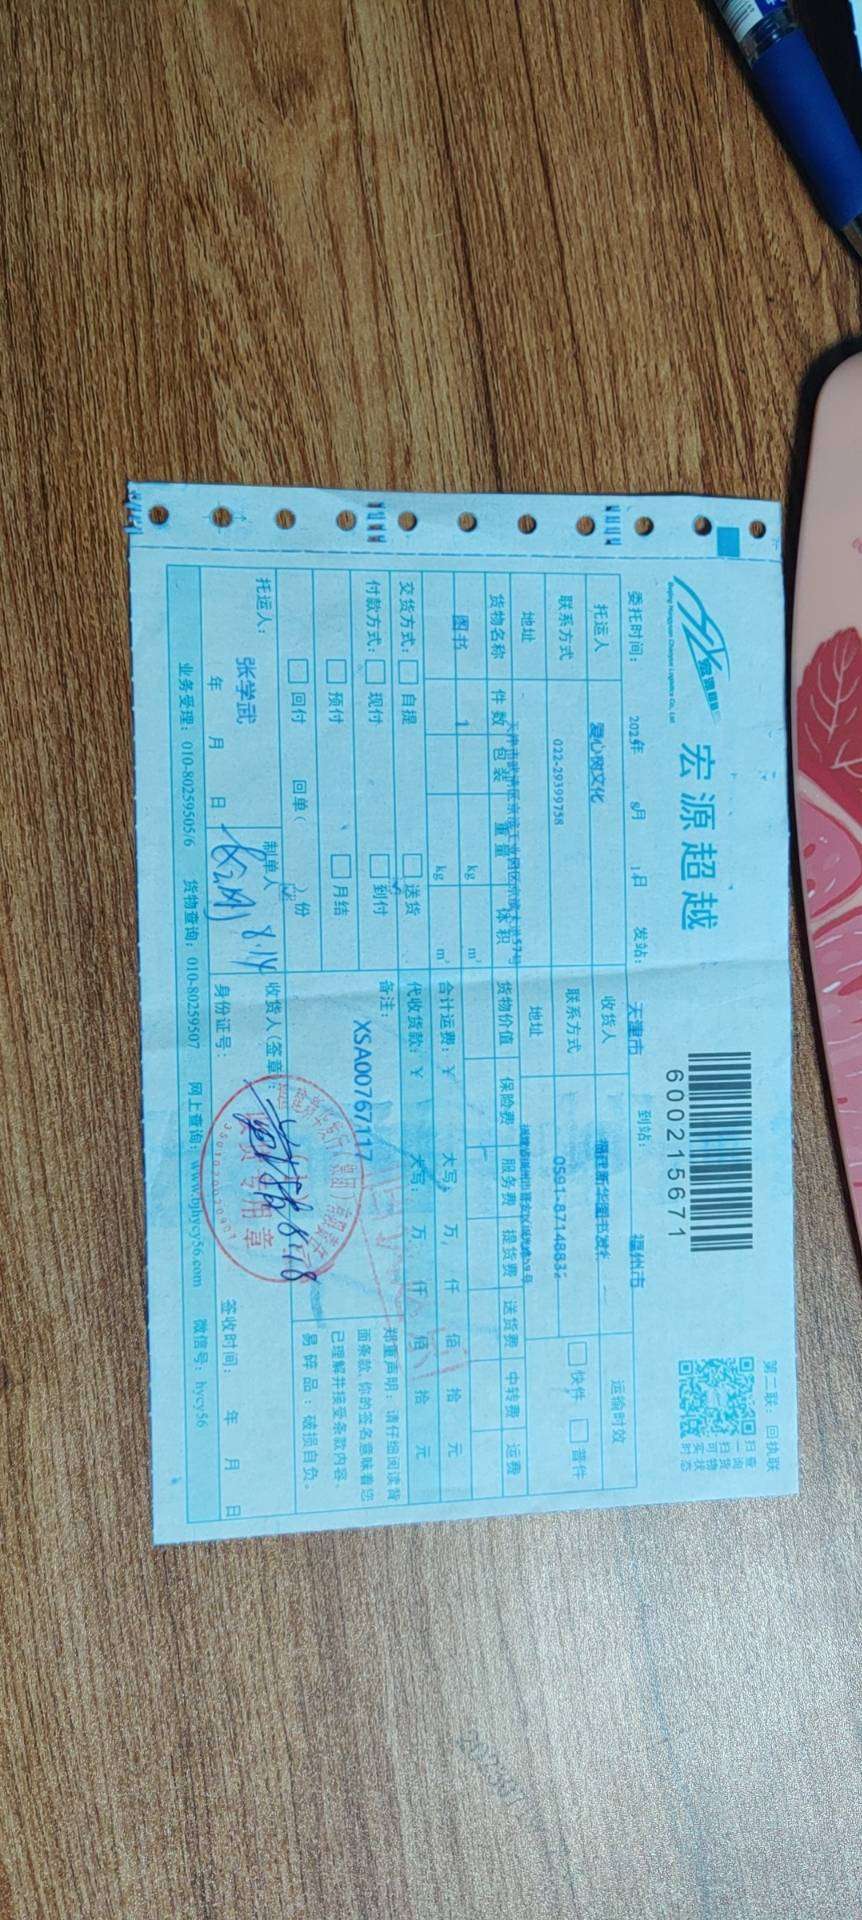 宏源超越
Beijing Hongyuan Chaoyue Logistics Co., Ltd
宏源超越
600215671
第二联：回执联
扫一扫可实时
查询货物状态
委托时间： 年 8月 1日 发站： 天津市 到站： 福州市
托运人 爱心树文化 收货人 福建新华图书发行 运输时效
联系方式 022-29399758 联系方式 快件 普件
地址 地址
货物名称 件数 包装 重量 体积 货物价值 保险费 服务费 提货费 送货费 中转费 运费
图书 1 kg m³ 合计运费：￥ 大写： 万 仟 佰 拾 元
kg m³ 代收货款：￥ 大写： 万 仟 佰 拾 元
交货方式： 自提 送货
付款方式： 现付 到付
预付 月结
回付 回单（ ）份
备注：
XSA00767117
郑重声明：请仔细阅读背
面条款，你的签名意味着您
已理解并接受条款内容。
易碎品：破损自负。
托运人： 张学武 制单人 8.14
年 月 日
收货人(签章)： 8.18
专用章
身份证号： 签收时间： 年 月 日
业务受理：010-80259505/6 货物查询：010-80259507 网上查询：www.bjhycy56.com 微信号：hycy56